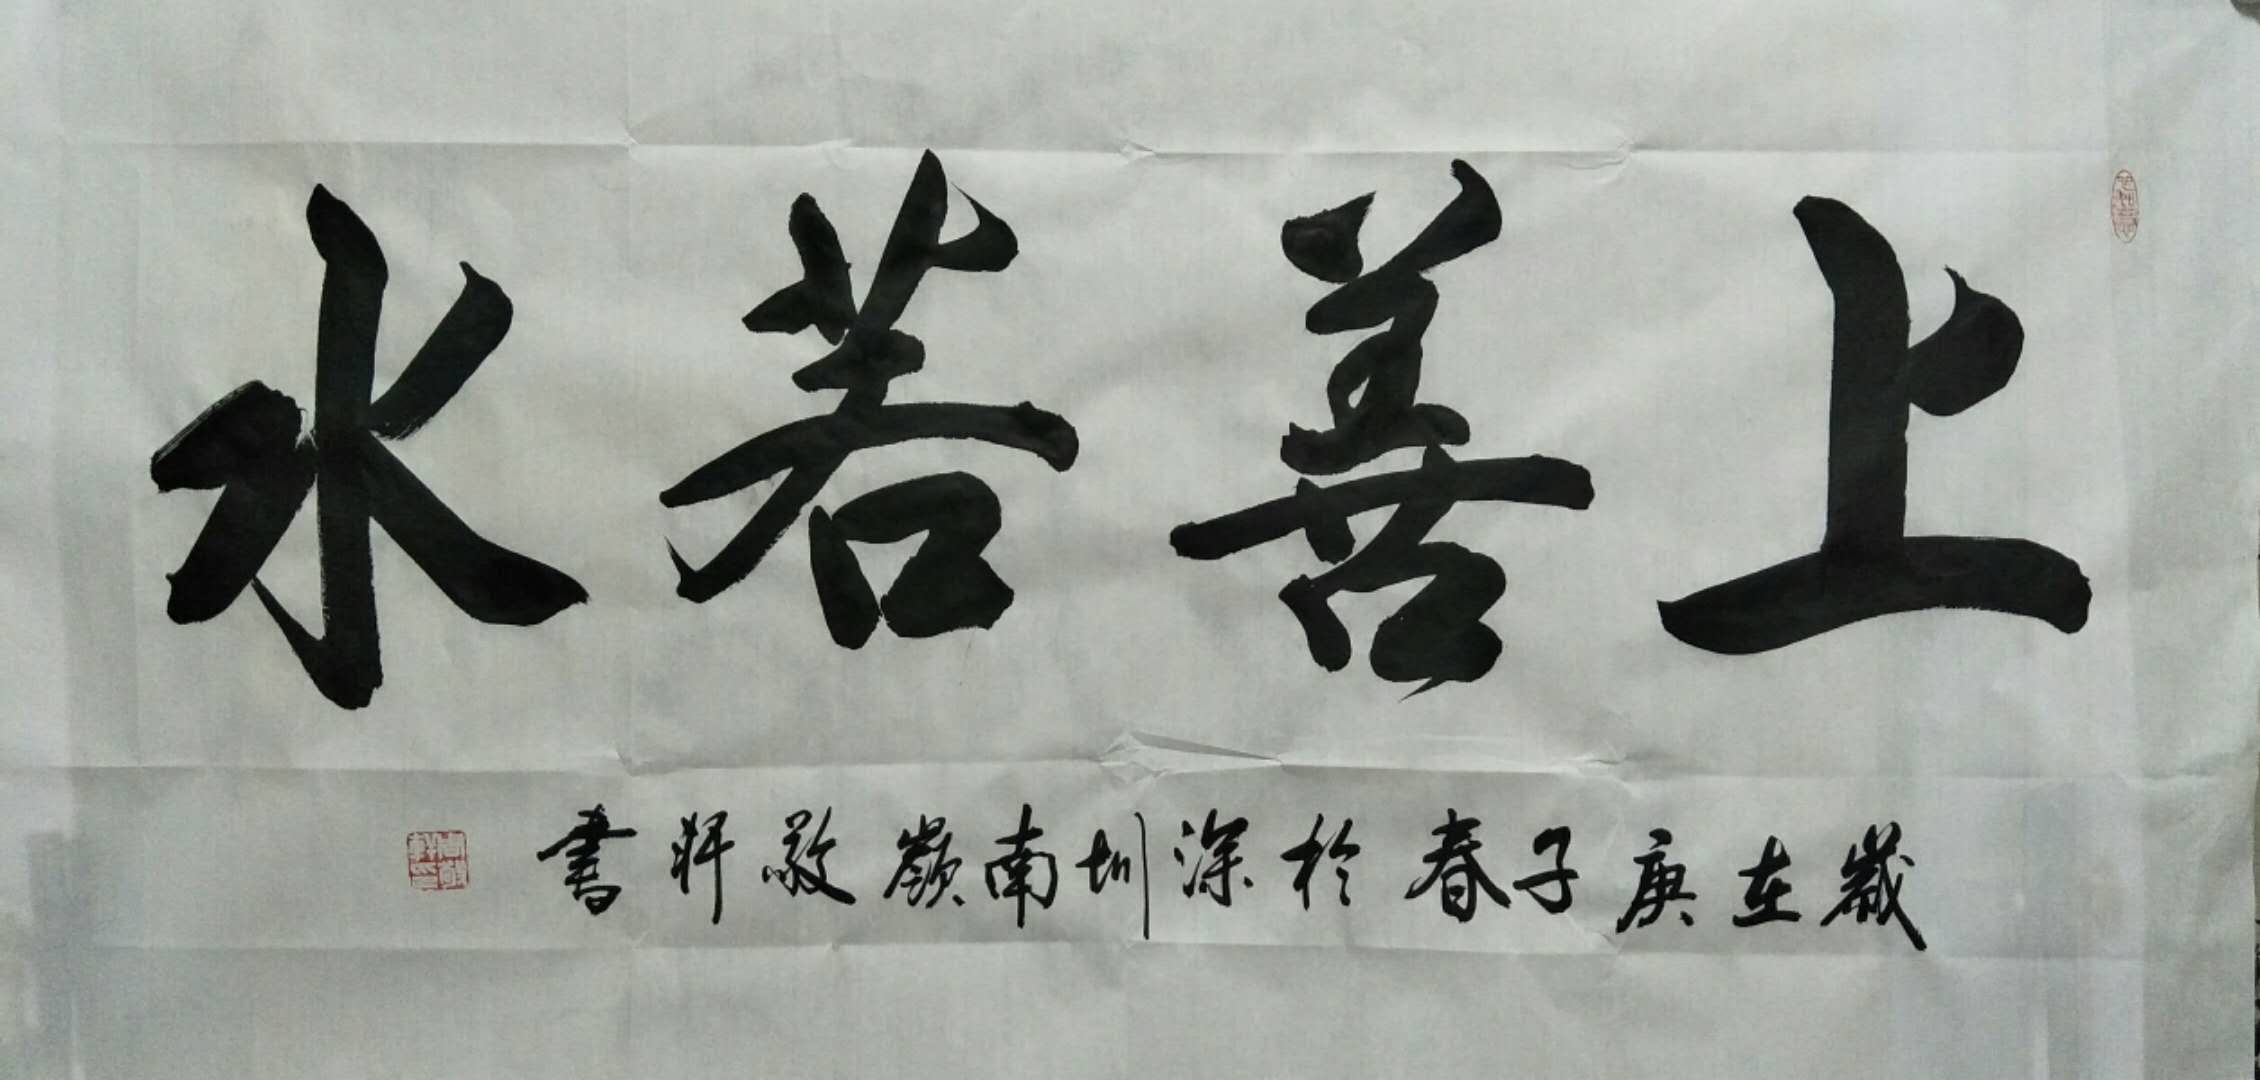 上善若水
歲在庚子春於深圳南嶺敬軒書